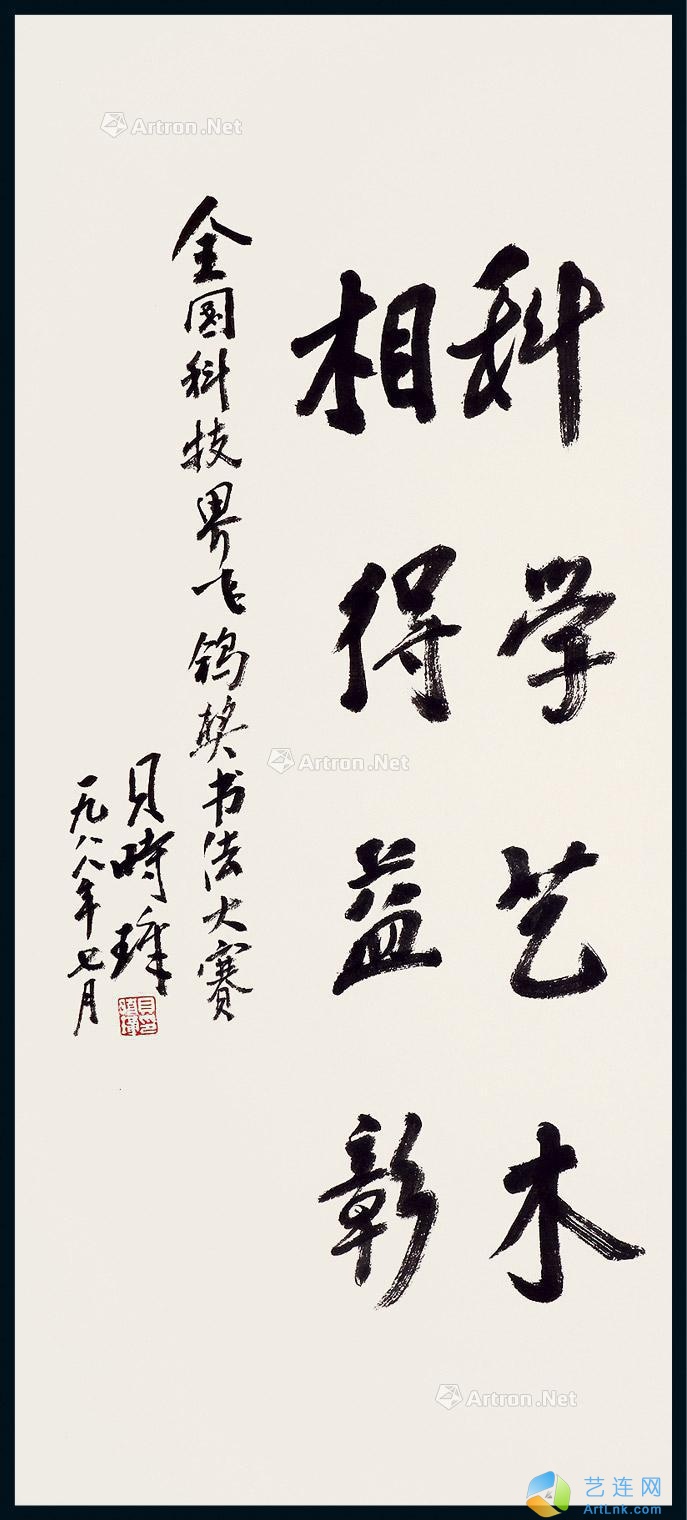 科学艺术
相得益彰
全国科技界飞鸽奖书法大赛
贝时璋
一九八八年七月
Artron.Net
Artron.Net
Artron.Net
艺连网
ArtLnk.com